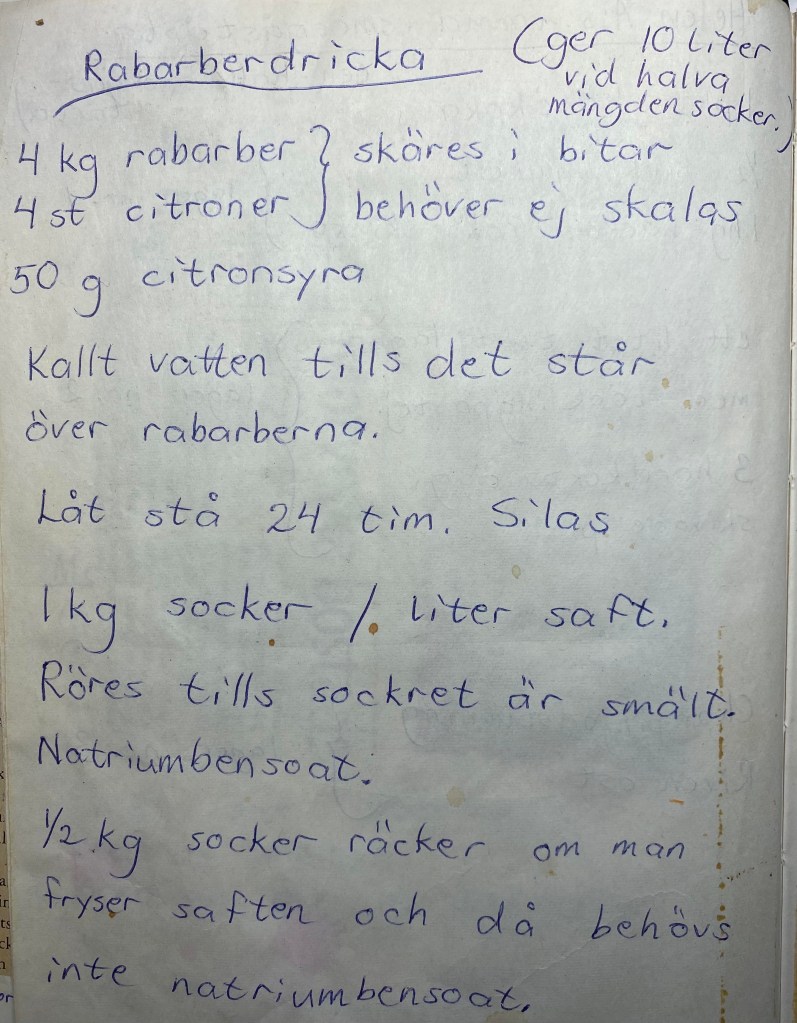 Rabarberdricka (ger 10 liter
vid halva
mängden socker.)
4 kg rabarber } skäres i bitar
4 st citroner } behöver ej skalas
50 g citronsyra
Kallt vatten tills det står
över rabarberna.
Låt stå 24 tim. Silas
1 kg socker / liter saft.
Röres tills sockret är smält.
Natriumbensoat.
1/2 kg socker räcker om man
fryser saften och då behövs
inte natriumbensoat.